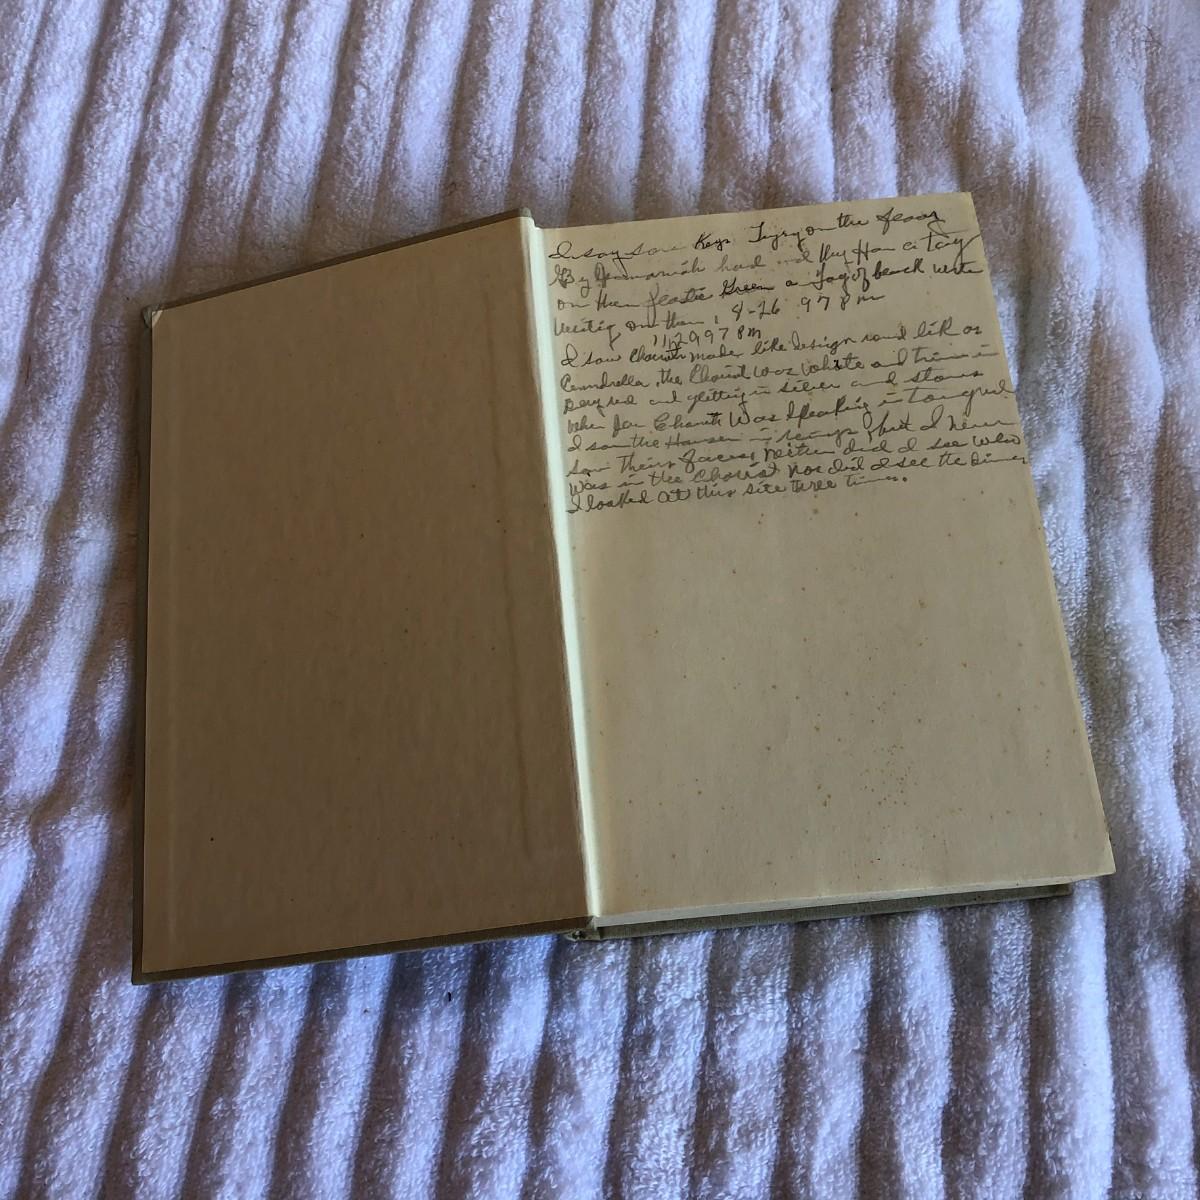 I say saw Keys Tyry on the floor
By had and they Han a Tag
on them Green a Tag of beack write
on them, 8-26 97 8 pm
11/29 97 8 PM
I saw Chariot made like design round lik as
the Chariot was white and trim in
red and glitting in silver and stones
when Jan Chariot Was Speaking in Tongud
I saw the Horses in rings, but I never
saw their faces, neither did I see who
was in the Chariot nor did I see the Diner
I looked at this site three times.